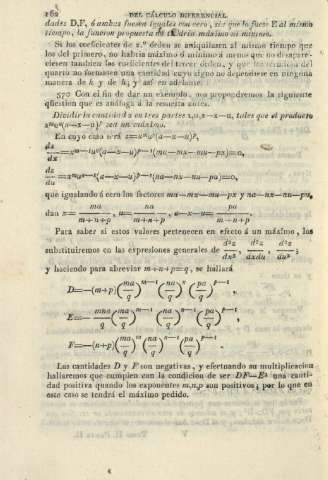 162 DEL CÁLCULO DIFERENCIAL.
dades D,F, ó ambas fuesen iguales con cero, sin que lo fuese E al mismo
tiempo, la funcion propuesta no tendria máximo ni mínimo.
Si los coeficientes de 2.º órden se aniquilasen al mismo tiempo que
los del primero, no habria máximo ó mínimo á menos que no desapare-
ciesen tambien los coeficientes del tercer órden, y que los términos del
quarto no formasen una cantidad cuyo signo no dependiese en ninguna
manera de h y de k; y así en adelante.
570 Con el fin de dar un exemplo, nos propondremos la siguiente
qüestion que es análoga á la resuelta antes.
Dividir la cantidad a en tres partes x,u,a—x—u, tales que el producto
x^m u^n (a—x—u)^p sea un máximo.
En cuyo caso será z=x^m u^n (a—x—u)^p,
dz/dx =x^{m—1}u^n(a—x—u)^{p—1}(ma—mx—mu—px)=0,
dz/du =x^m u^{n—1}(a—x—u)^{p—1}(na—nx—nu—pu)=0,
que igualando á cero los factores ma—mx—mu—px y na—nx—nu—pu,
dan x= ma/(m+n+p), u= na/(m+n+p), a—x—u= pa/(m+n+p).
Para saber si estos valores pertenecen en efecto á un máximo, los
substituiremos en las expresiones generales de d²z/dx², d²z/dxdu, d²z/du²;
y haciendo para abreviar m+n+p=q, se hallará
D=—(m+p)(ma/q)^{m—1}(na/q)^n(pa/q)^{p—1},
E=—(mna/q)(ma/q)^{m—1}(na/q)^{n—1}(pa/q)^{p—1},
F=—(n+p)(ma/q)^m(na/q)^{n—1}(pa/q)^{p—1}.
Las cantidades D y F son negativas, y efectuando su multiplicacion
hallaremos que cumplen con la condicion de ser DF—E² una canti-
dad positiva quando los exponentes m,n,p son positivos; por lo que en
este caso se tendrá el máximo pedido.